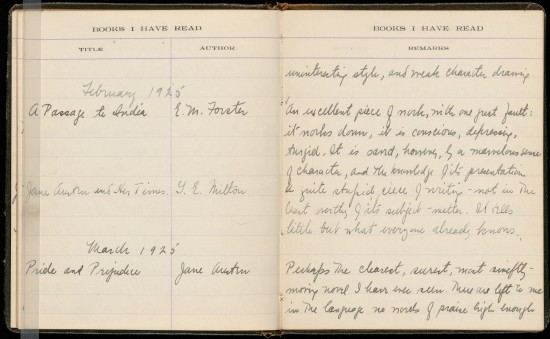 BOOKS I HAVE READ
TITLE AUTHOR
February 1925
A Passage to India E. M. Forster
Jane Austen and Her Times. G. E. Mitton
March 1925
Pride and Prejudice Jane Austen
BOOKS I HAVE READ
REMARKS
uninteresting style, and weak character drawing.
An excellent piece of work, with one great fault:
it works down, it is conscious, depressing,
turgid. It is saved, however, by a marvelous sense
of character, and the knowledge of its presentation
a quite stupid piece of writing - not in the
least worthy of its subject-matter. It tells
little but what everyone already knows.
Perhaps the clearest, surest, most swiftly-
moving novel I have ever seen. There are left to me
in the language no words of praise high enough